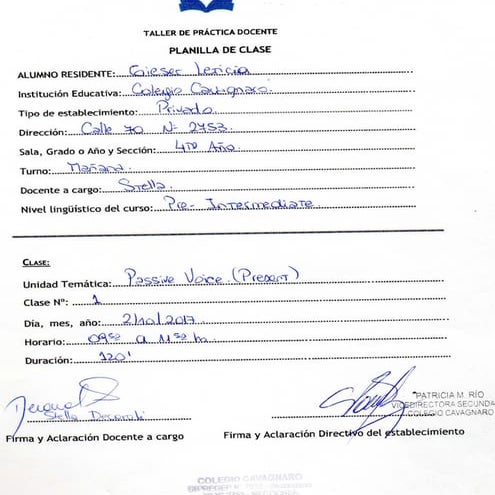 TALLER DE PRÁCTICA DOCENTE
PLANILLA DE CLASE
ALUMNO RESIDENTE: Gieser Leticia
Institución Educativa: Colegio Cavagnaro.
Tipo de establecimiento: Privado
Dirección: Calle 70 N° 2753.
Sala, Grado o Año y Sección: 4to Año
Turno: Mañana.
Docente a cargo: Stella.
Nivel lingüístico del curso: Pre-Intermediate
CLASE:
Unidad Temática: Passive Voice (Present)
Clase N°: 1
Día, mes, año: 2/10/2017
Horario: 09:50 a 11:50 h
Duración: 120'
Stella
PATRICIA M. RÍO
VICEDIRECTORA SECUNDA
COLEGIO CAVAGNARO
Firma y Aclaración Docente a cargo
Firma y Aclaración Directivo del establecimiento
COLEGIO CAVAGNARO